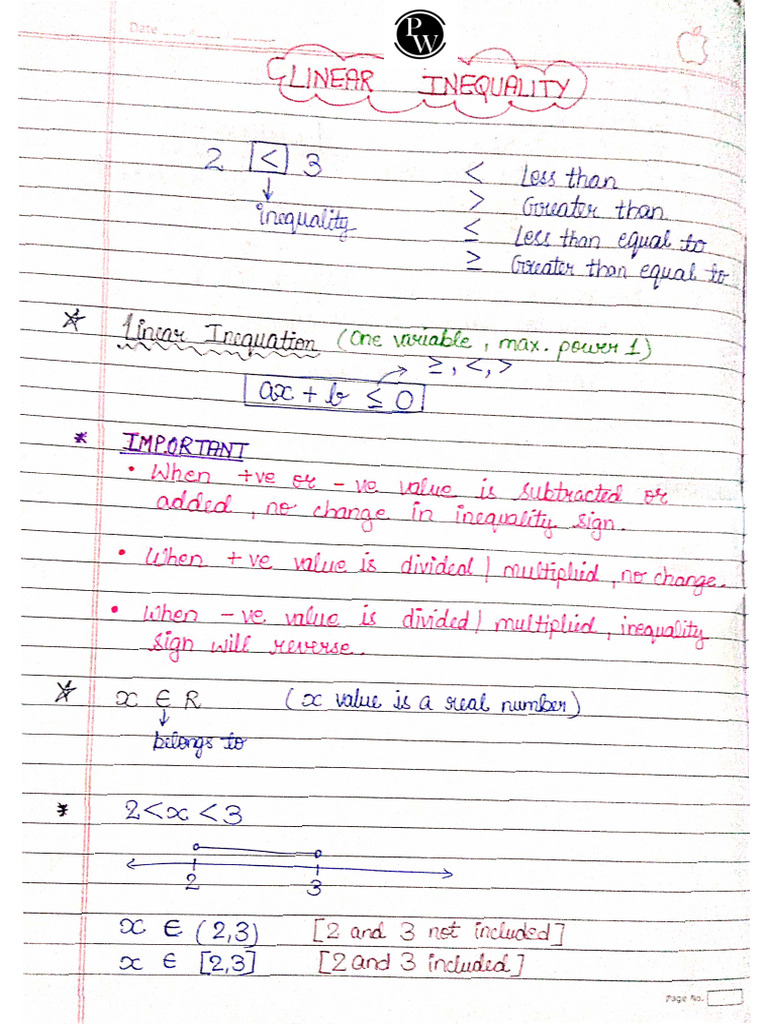 Date
PW
LINEAR INEQUALITY
2 < 3
↓
inequality
< Less than
> Greater than
≤ Less than equal to
≥ Greater than equal to
Linear Inequation (One variable, max. power 1)
≥, <, >
ax + b ≤ 0
IMPORTANT
• When +ve or -ve value is subtracted or
added, no change in inequality sign.
• When +ve value is divided/multiplied, no change.
• When -ve value is divided/multiplied, inequality
sign will reverse.
x ∈ R (x value is a real number)
↓
belongs to
2<x<3
2 3
x ∈ (2,3) [2 and 3 not included]
x ∈ [2,3] [2 and 3 included]
Page No.